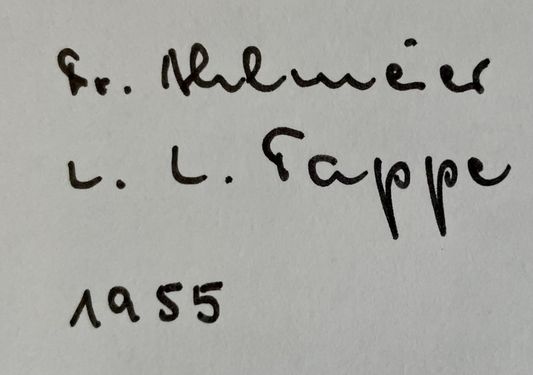 Fr. Ahlmeier
L. L. Tappe
1955